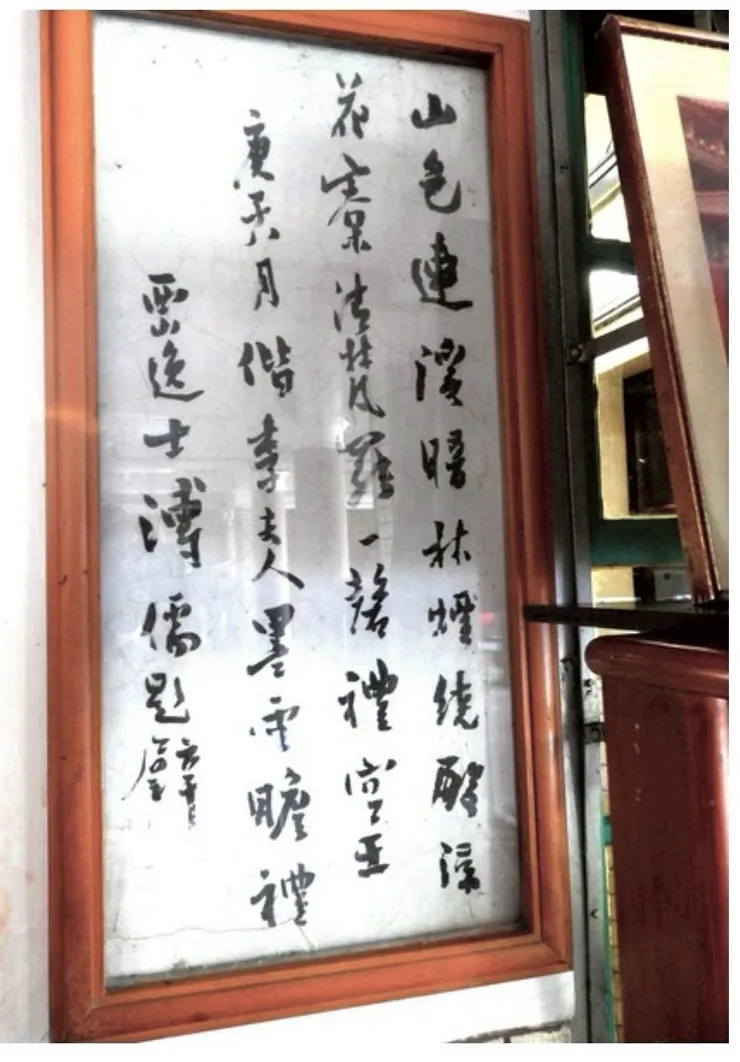 山色連溪暗林煙繞殿
花寮清梵一禮空王
庚子六月偕李夫人墨雲瞻禮
西山逸士溥儒題壁